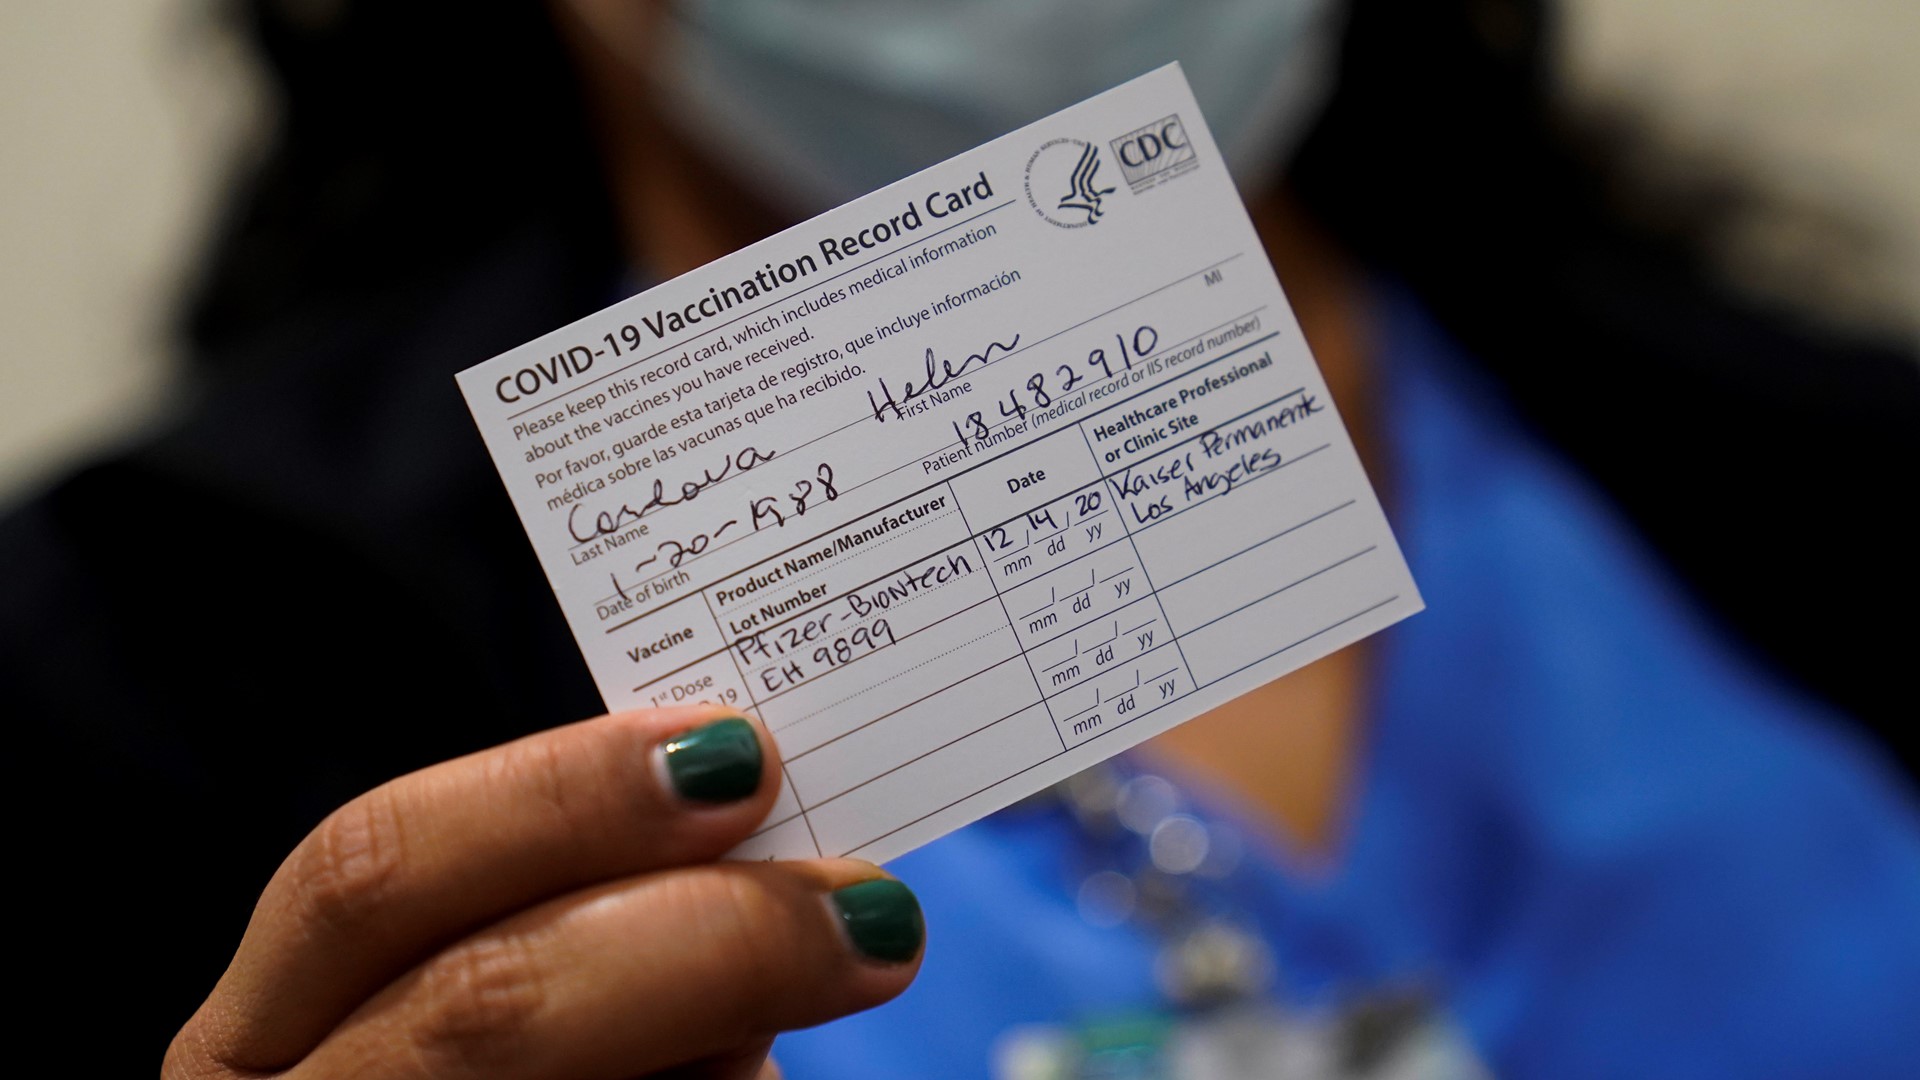 COVID-19 Vaccination Record Card
CDC
Please keep this record card, which includes medical information
about the vaccines you have received.
Por favor, guarde esta tarjeta de registro, que incluye información
médica sobre las vacunas que ha recibido.
Cordova Helen
Last Name First Name MI
1-20-1988 18482910
Date of birth Patient number (medical record or IIS record number)
Vaccine Product Name/Manufacturer Date Healthcare Professional
Lot Number or Clinic Site
1st Dose Pfizer-BioNtech 12/14/20 Kaiser Permanente
19 EH 9899 mm dd yy Los Angeles
mm dd yy
mm dd yy
mm dd yy